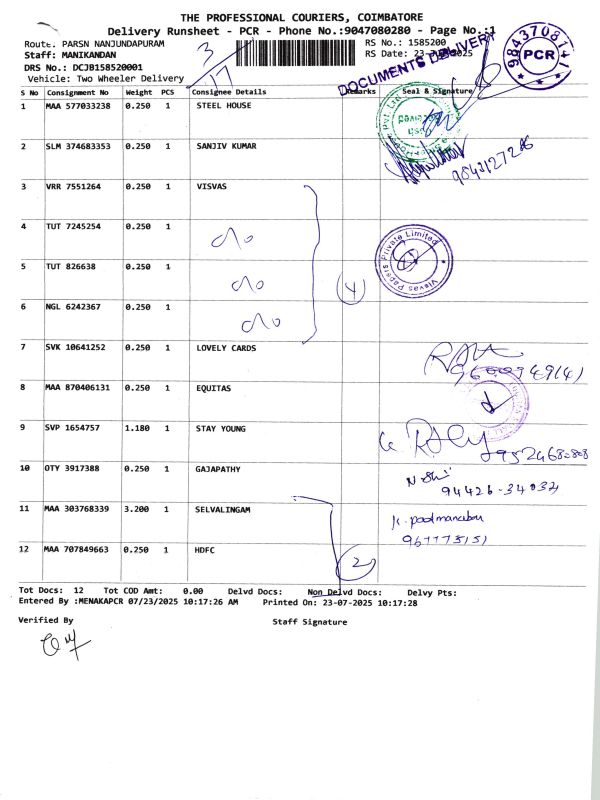 THE PROFESSIONAL COURIERS, COIMBATORE
Delivery Runsheet - PCR - Phone No.:9047080280 - Page No.:1
Route. PARSN NANJUNDAPURAM
RS No.: 1585200
Staff: MANIKANDAN
RS Date: 23-
DRS No.: DCJB158520001
Vehicle: Two Wheeler Delivery
3
17
DOCUMENTS DELIVERY
PCR
S No Consignment No Weight PCS Consignee Details Remarks Seal & Signature
1 MAA 577033238 0.250 1 STEEL HOUSE
2 SLM 374683353 0.250 1 SANJIV KUMAR
3 VRR 7551264 0.250 1 VISVAS
4 TUT 7245254 0.250 1
Visvas Papers Private Limited
5 TUT 826638 0.250 1
4
6 NGL 6242367 0.250 1
7 SVK 10641252 0.250 1 LOVELY CARDS
8 MAA 870406131 0.250 1 EQUITAS
9 SVP 1654757 1.180 1 STAY YOUNG
10 OTY 3917388 0.250 1 GAJAPATHY
94426-34034
11 MAA 303768339 3.200 1 SELVALINGAM
12 MAA 707849663 0.250 1 HDFC
2
Tot Docs: 12 Tot COD Amt: 0.00 Delvd Docs: Non Delvd Docs: Delvy Pts:
Entered By :MENAKAPCR 07/23/2025 10:17:26 AM Printed On: 23-07-2025 10:17:28
Verified By Staff Signature